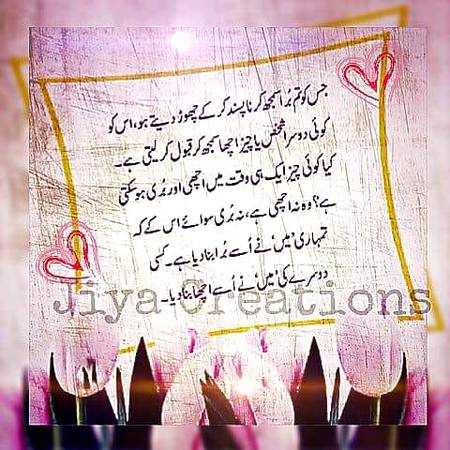 جس کو تم بُرا سمجھ کر ناپسند کر کے چھوڑ دیتے ہو، اس کو
کوئی دوسرا شخص یا چیز اچھا سمجھ کر قبول کر لیتی ہے۔
کیا کوئی چیز ایک ہی وقت میں اچھی اور بُری ہو سکتی
ہے؟ وہ نہ اچھی ہے، نہ بُری سوائے اس کے کہ
تمہاری 'میں' نے اُسے بُرا بنا دیا ہے۔ کسی
دوسرے کی 'میں' نے اُسے اچھا بنا دیا۔
Jiya Creations